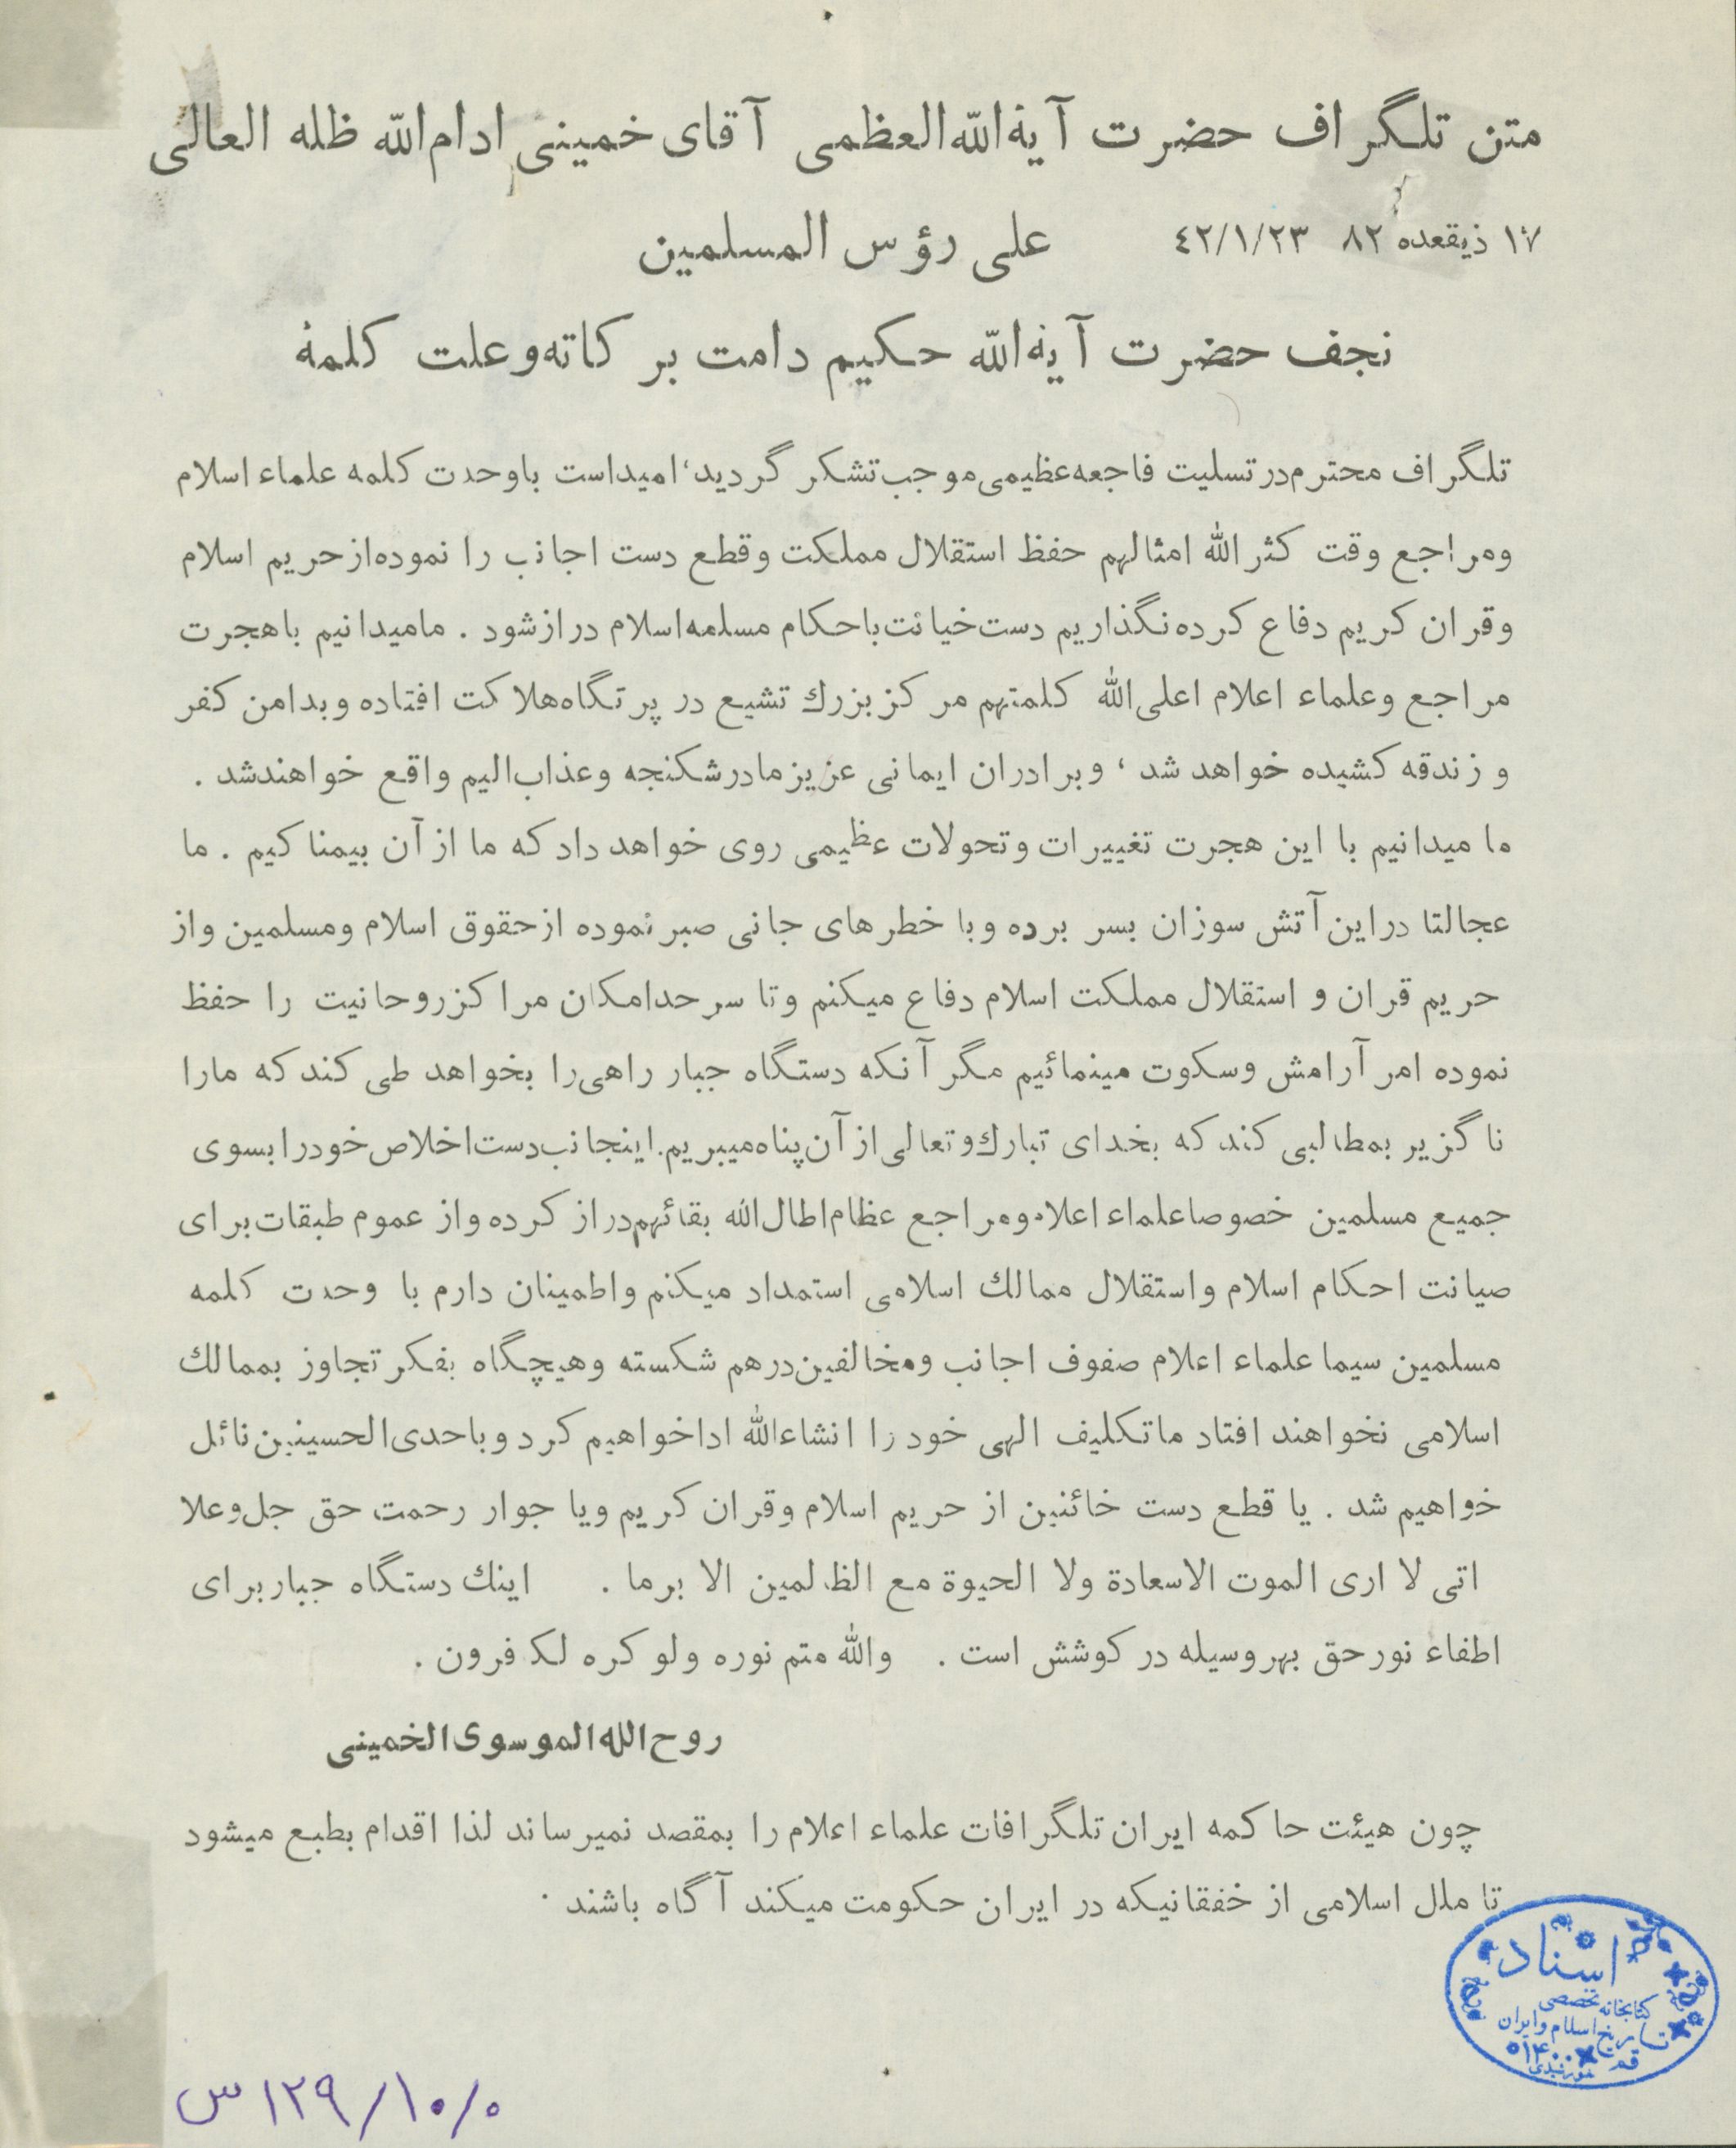 متن تلگراف حضرت آیةالله‌العظمی آقای خمینی ادام‌الله ظله العالی
علی رؤس المسلمین
۱۷ ذیقعده ۸۲ ۴۲/۱/۲۳
نجف حضرت آیةالله حکیم دامت برکاته‌وعلت کلمة
تلگراف محترم‌درتسلیت فاجعه‌عظیمی‌موجب‌تشکر گردید، امیداست باوحدت کلمه علماء اسلام
ومراجع وقت کثرالله امثالهم حفظ استقلال مملکت وقطع دست اجانب را نموده‌ازحریم اسلام
وقران کریم دفاع کرده‌نگذاریم دست‌خیانت‌باحکام مسلمه‌اسلام درازشود . مامیدانیم باهجرت
مراجع وعلماء اعلام اعلی‌الله کلمتهم مرکزبزرك تشیع در پرتگاه‌هلاکت افتاده وبدامن کفر
و زندقه کشیده خواهد شد ، وبرادران ایمانی عزیزمادرشکنجه وعذاب‌الیم واقع خواهندشد .
ما میدانیم با این هجرت تغییرات وتحولات عظیمی روی خواهد دادکه ما ازآن بیمناکیم . ما
عجالتا دراین‌آتش سوزان بسر برده وبا خطرهای جانی صبرنموده ازحقوق اسلام ومسلمین واز
حریم قران و استقلال مملکت اسلام دفاع میکنم وتا سرحدامکان مراکزروحانیت را حفظ
نموده امر آرامش وسکوت مینمائیم مگرآنکه دستگاه جبار راهی‌را بخواهد طی کندکه مارا
ناگزیر بمطالبی کندکه بخدای تبارك‌وتعالی ازآن‌پناه‌میبریم.اینجانب‌دست‌اخلاص‌خودرابسوی
جمیع مسلمین خصوصاعلماء اعلام‌ومراجع عظام‌اطال‌الله بقائهم‌درازکرده واز عموم طبقات‌برای
صیانت احکام اسلام واستقلال ممالك اسلامی استمداد میکنم واطمینان دارم با وحدت کلمه
مسلمین سیما علماء اعلام صفوف اجانب ومخالفین‌درهم شکسته وهیچگاه بفکرتجاوز بممالك
اسلامی نخواهند افتاد ماتکلیف الهی خود را انشاءالله اداخواهیم کرد وباحدی‌الحسینین‌نائل
خواهیم شد . یا قطع دست خائنین از حریم اسلام وقران کریم ویا جوار رحمت حق جل‌وعلا
اتی لا اری الموت الاسعادة ولا الحیوة مع الظالمین الا برما . اینك دستگاه جباربرای
اطفاء نورحق بهروسیله درکوشش است . والله متم نوره ولو کره لکفرون .
روح‌الله‌الموسوی‌الخمینی
چون هیئت حاکمه ایران تلگرافات علماء اعلام را بمقصد نمیرساند لذا اقدام بطبع میشود
تا ملل اسلامی از خفقانیکه در ایران حکومت میکند آگاه باشند .
اسناد
کتابخانه تخصصی
تاریخ اسلام و ایران
قم
۱۲۹/۱۰/۰ س